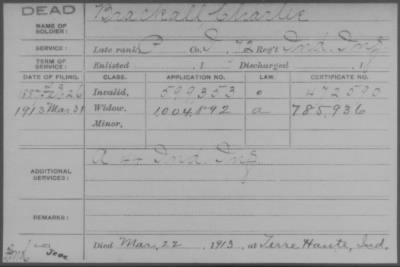 DEAD
NAME OF SOLDIER: Brackall Charlie
SERVICE: Late rank P Co. I, 72 Reg't Ind. Inf
TERM OF SERVICE: Enlisted , 1 Discharged , 1
DATE OF FILING. CLASS. APPLICATION NO. LAW. CERTIFICATE NO.
Invalid, 599,353 472590
1913 Mar 31 Widow, 1004,892 a 785,936
Minor,
ADDITIONAL SERVICES: Ind. Inf
REMARKS:
Died Mar, 22, 1913, at Terre Haute, Ind.